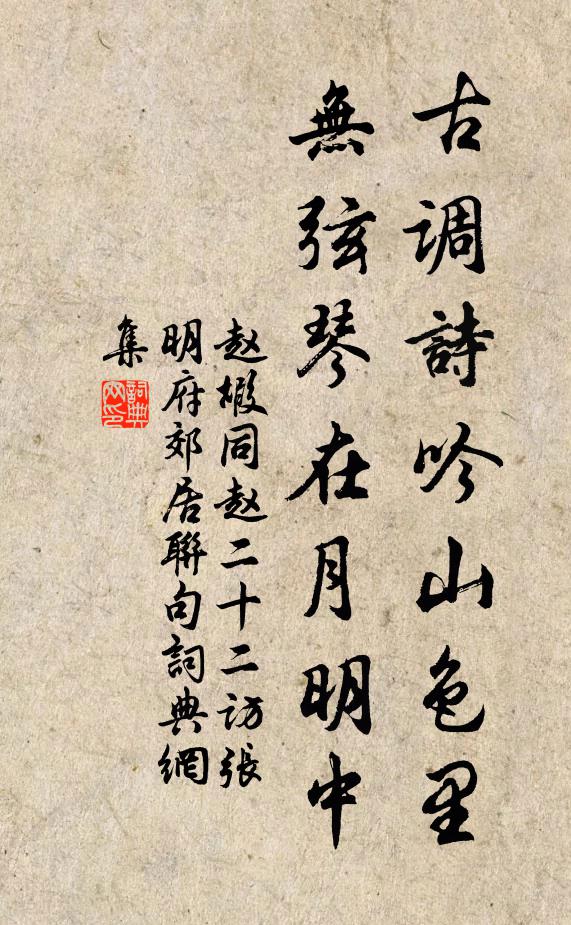 古调詩吟山色里
無弦琴在月明中
赵嘏同赵二十二访張
明府郊居聯句詞典網
集
詞典
网印